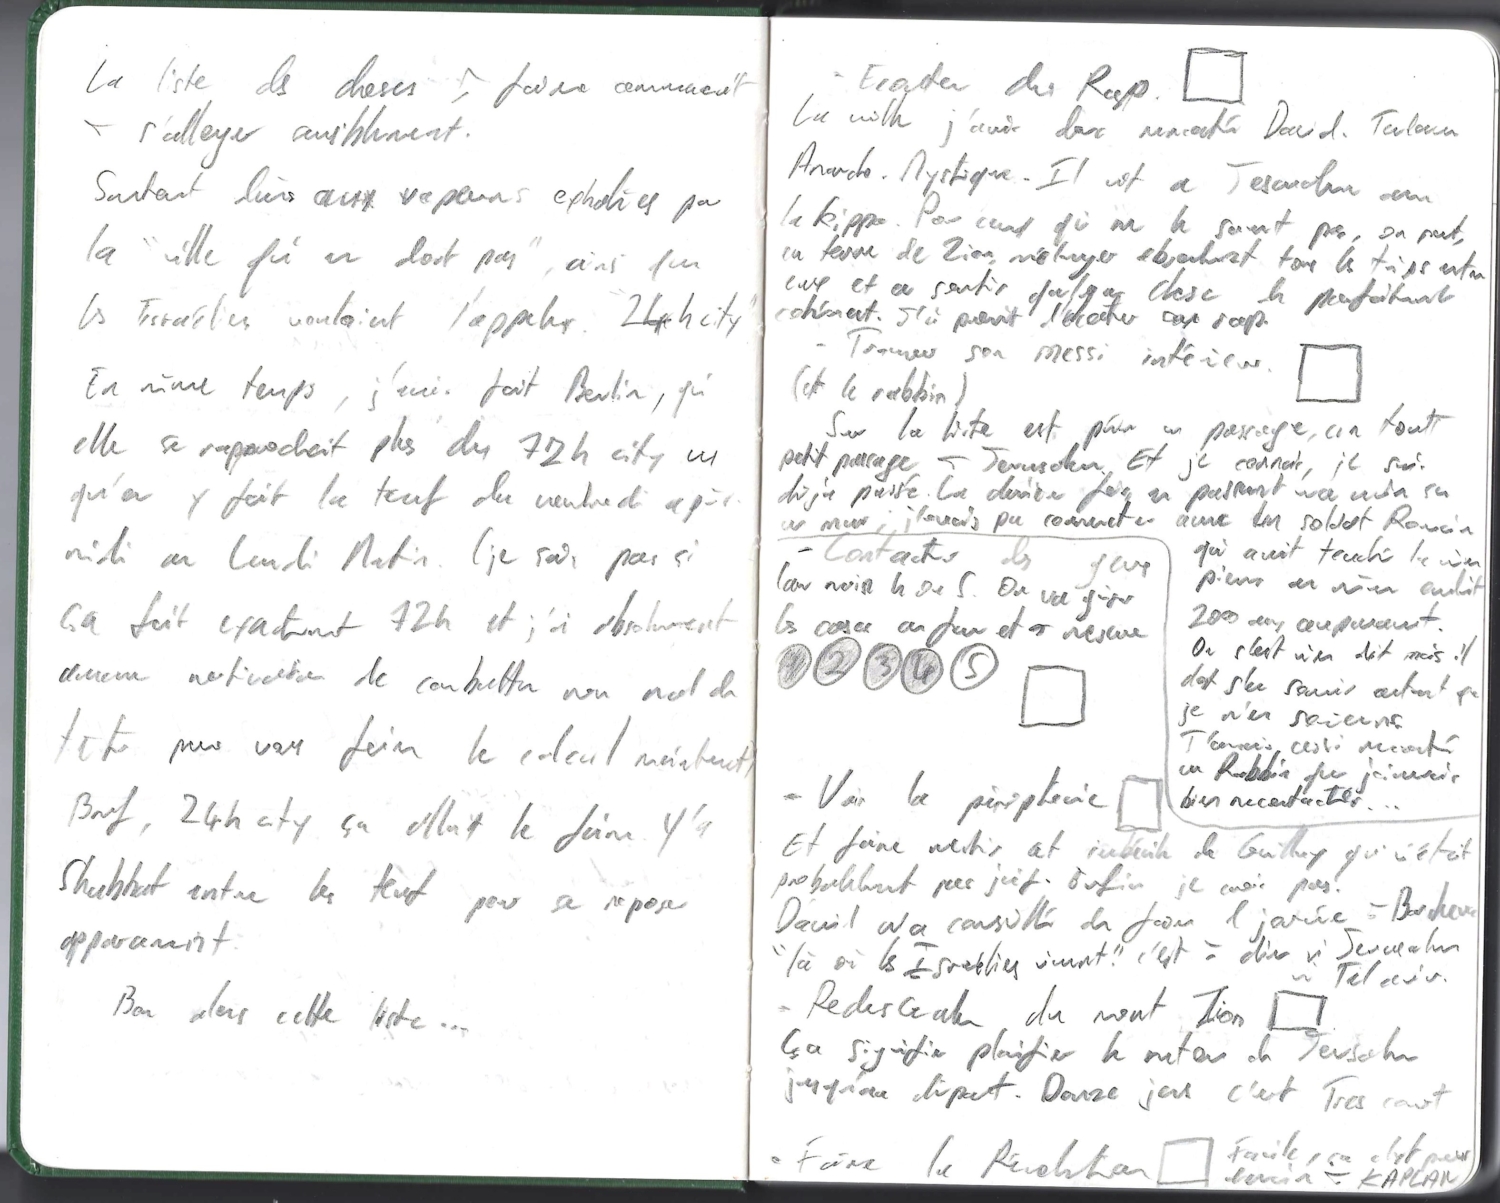 La liste des choses à faire commençait
à s'alléger sensiblement.
Surtout dans aux vapeurs exhalées par
la "ville qui ne dort pas", ainsi que
les Israéliens voulaient l'appeler. "24h city"
En même temps, j'avais fait Berlin, qui
elle se rapprochait plus du 72h city vu
qu'on y fait la teuf du vendredi après-
midi au Lundi Matin. (je sais pas si
ça fait exactement 72h et j'ai absolument
aucune motivation de combattre mon mal de
tête pour vous faire le calcul maintenant)
Bref, 24h city ça allait le faire Y'a
Shabbat entre les teuf pour se reposer
apparemment.
Bon alors cette liste...
- Ecouter du Rap.
La veille j'avais donc rencontré David.
Mystique. Il vit à Jerusalem
la kippa. Pour ceux qui ne le savent pas, on peut,
en terre de Zion, mélanger absolument tous les trips entre
eux et en sortir quelque chose de parfaitement
cohérent. S'il pouvait écouter du rap.
- Trouver son messi intérieur.
(et le rabbin)
Sur la liste est prévu un passage, un tout
petit passage à Jerusalem. Et je connais, je suis
déjà passé. La dernière fois en passant ma main sur
un mur, j'avais pu connecter avec un soldat Romain
qui avait touché la même
pierre au même endroit
2000 ans auparavant.
On s'est rien dit mais il
doit s'en souvenir autant que
je m'en souviens
J'avais aussi rencontré
un Rabbin que j'aimerais
bien recontacter...
- Contacter des gens
On va gérer
les cases au fur et à mesure
1 2 3 4 5
- Voir la périphérie
Et faire mentir cet imbécile de Guilhem qui n'était
probablement pas juif. Enfin je crois pas!
David m'a conseillé de faire 1 journée à
"là où les Israéliens vivent!" c'est à dire ni Jerusalem
ni Tel aviv.
- Redescendre du mont Zion
Ça signifie planifier le retour de Jerusalem
jusqu'au départ. Douze jours c'est Tres court
- Faire la Révolution
Facile, ça c'est pour
demain à KAPLAN